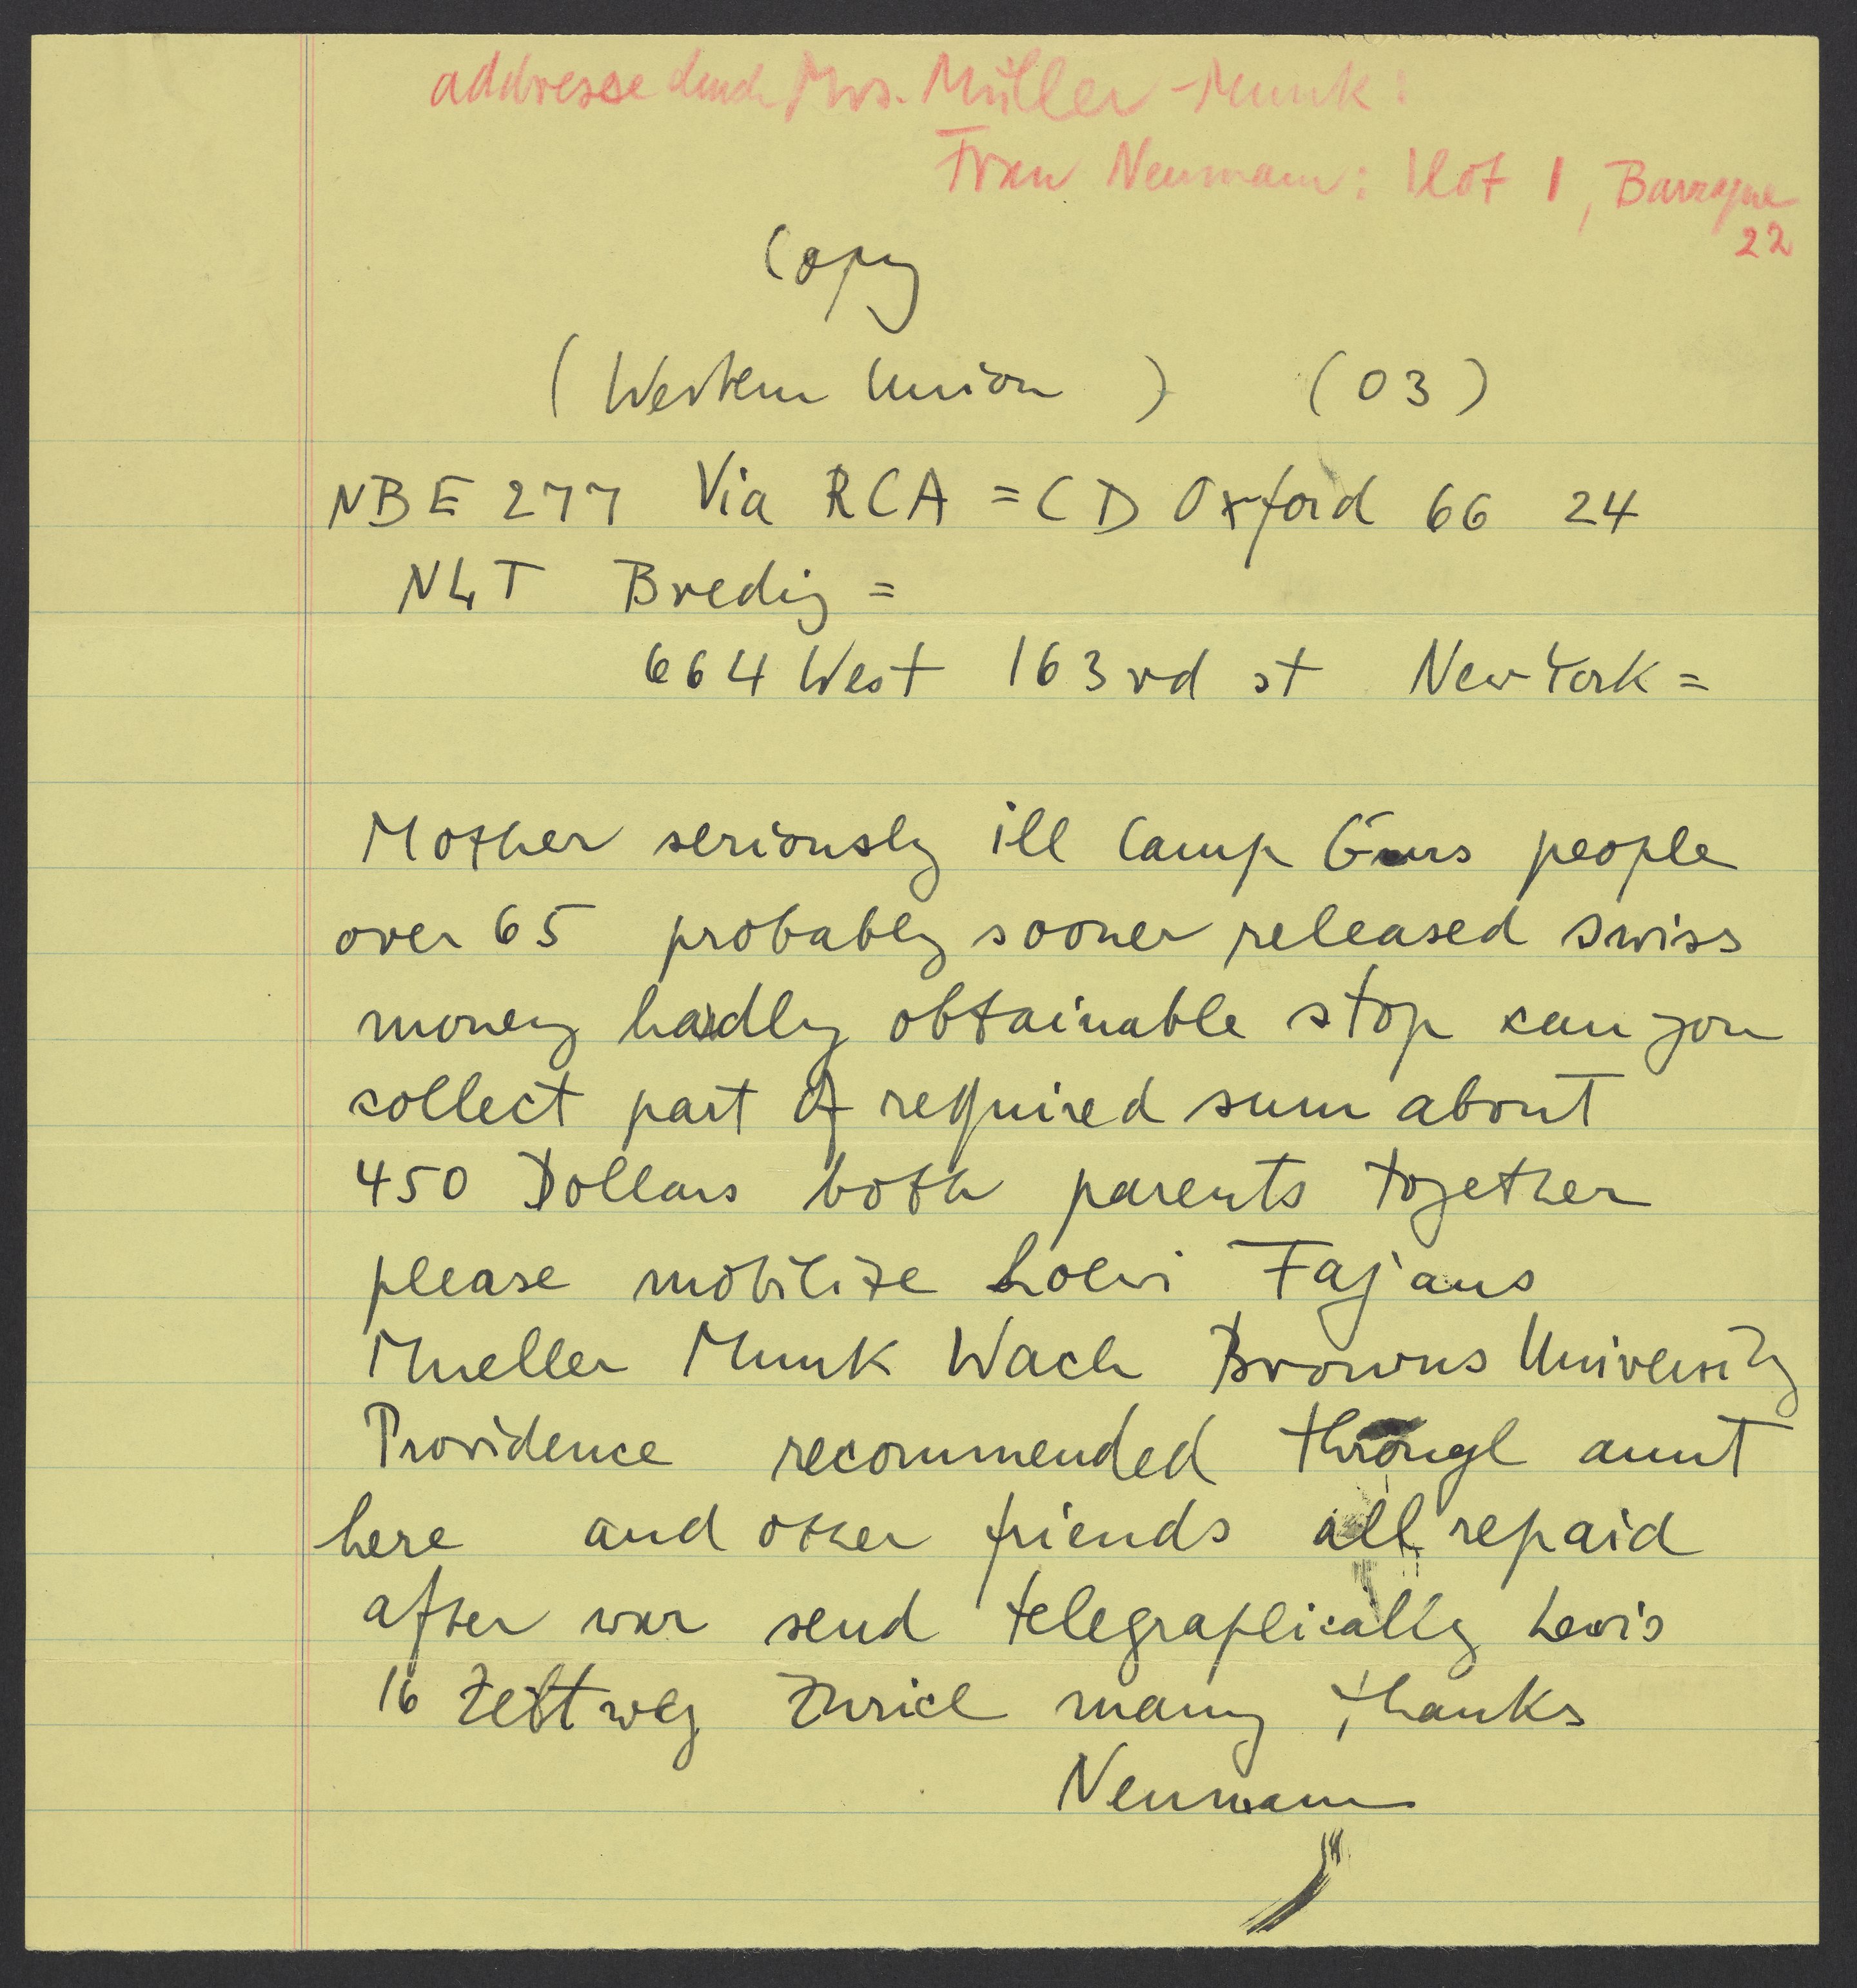 addresse durch Mrs. Müller-Munk:
Frau Neumann: Ilot 1, Barraque
22
Copy
(Western Union) (03)
NBE 277 Via RCA = CD Oxford 66 24
NLT Bredig =
664 West 163rd st New York =
Mother seriously ill Camp Gurs people
over 65 probably sooner released swiss
money hardly obtainable stop can you
collect part of required sum about
450 Dollars both parents together
please mobilize Loewi Fajans
Mueller Munk Wach Browns University
Providence recommended through aunt
here and other friends all repaid
after war send telegraphically Lewis
16 Zeltweg Zurich many thanks
Neumann